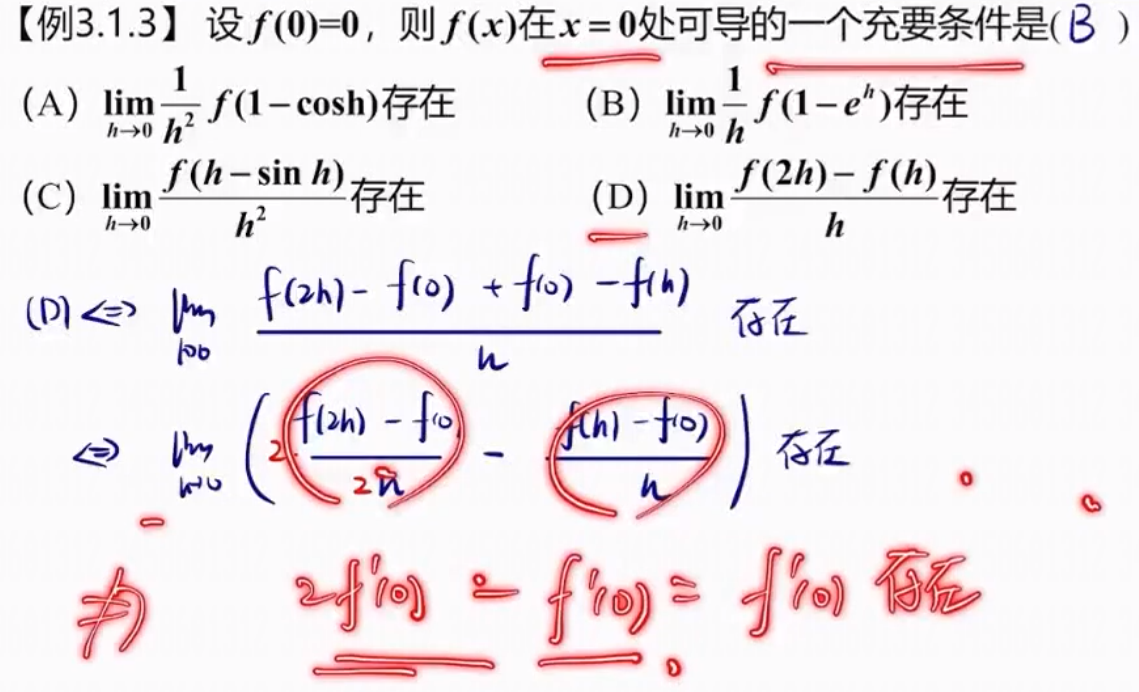 【例3.1.3】设f(0)=0，则f(x)在x=0处可导的一个充要条件是(B)
(A) lim_{h→0} 1/h² f(1−cosh)存在 (B) lim_{h→0} 1/h f(1−e^h)存在
(C) lim_{h→0} f(h−sin h)/h² 存在 (D) lim_{h→0} (f(2h)−f(h))/h 存在
(D) ⇔ lim_{h→0} (f(2h) − f(0) + f(0) − f(h))/h 存在
⇔ lim_{h→0} (2·(f(2h) − f(0))/2h − (f(h) − f(0))/h) 存在
⇏ 2f'(0) − f'(0) = f'(0) 存在